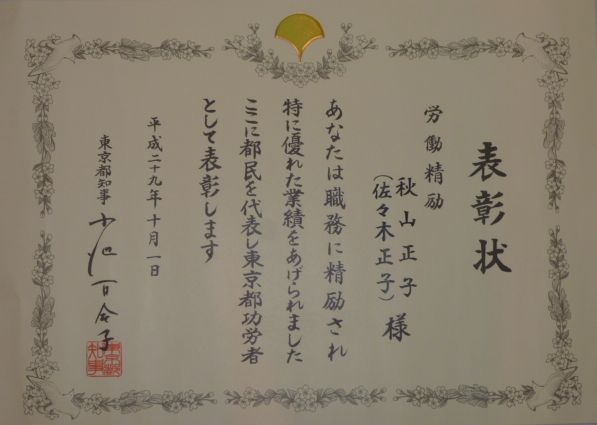 表彰状
労働精励
秋山正子
（佐々木正子）様
あなたは職務に精励され
特に優れた業績をあげられました
ここに都民を代表し東京都功労者
として表彰します
平成二十九年十月一日
東京都知事 小池百合子
東京都知事